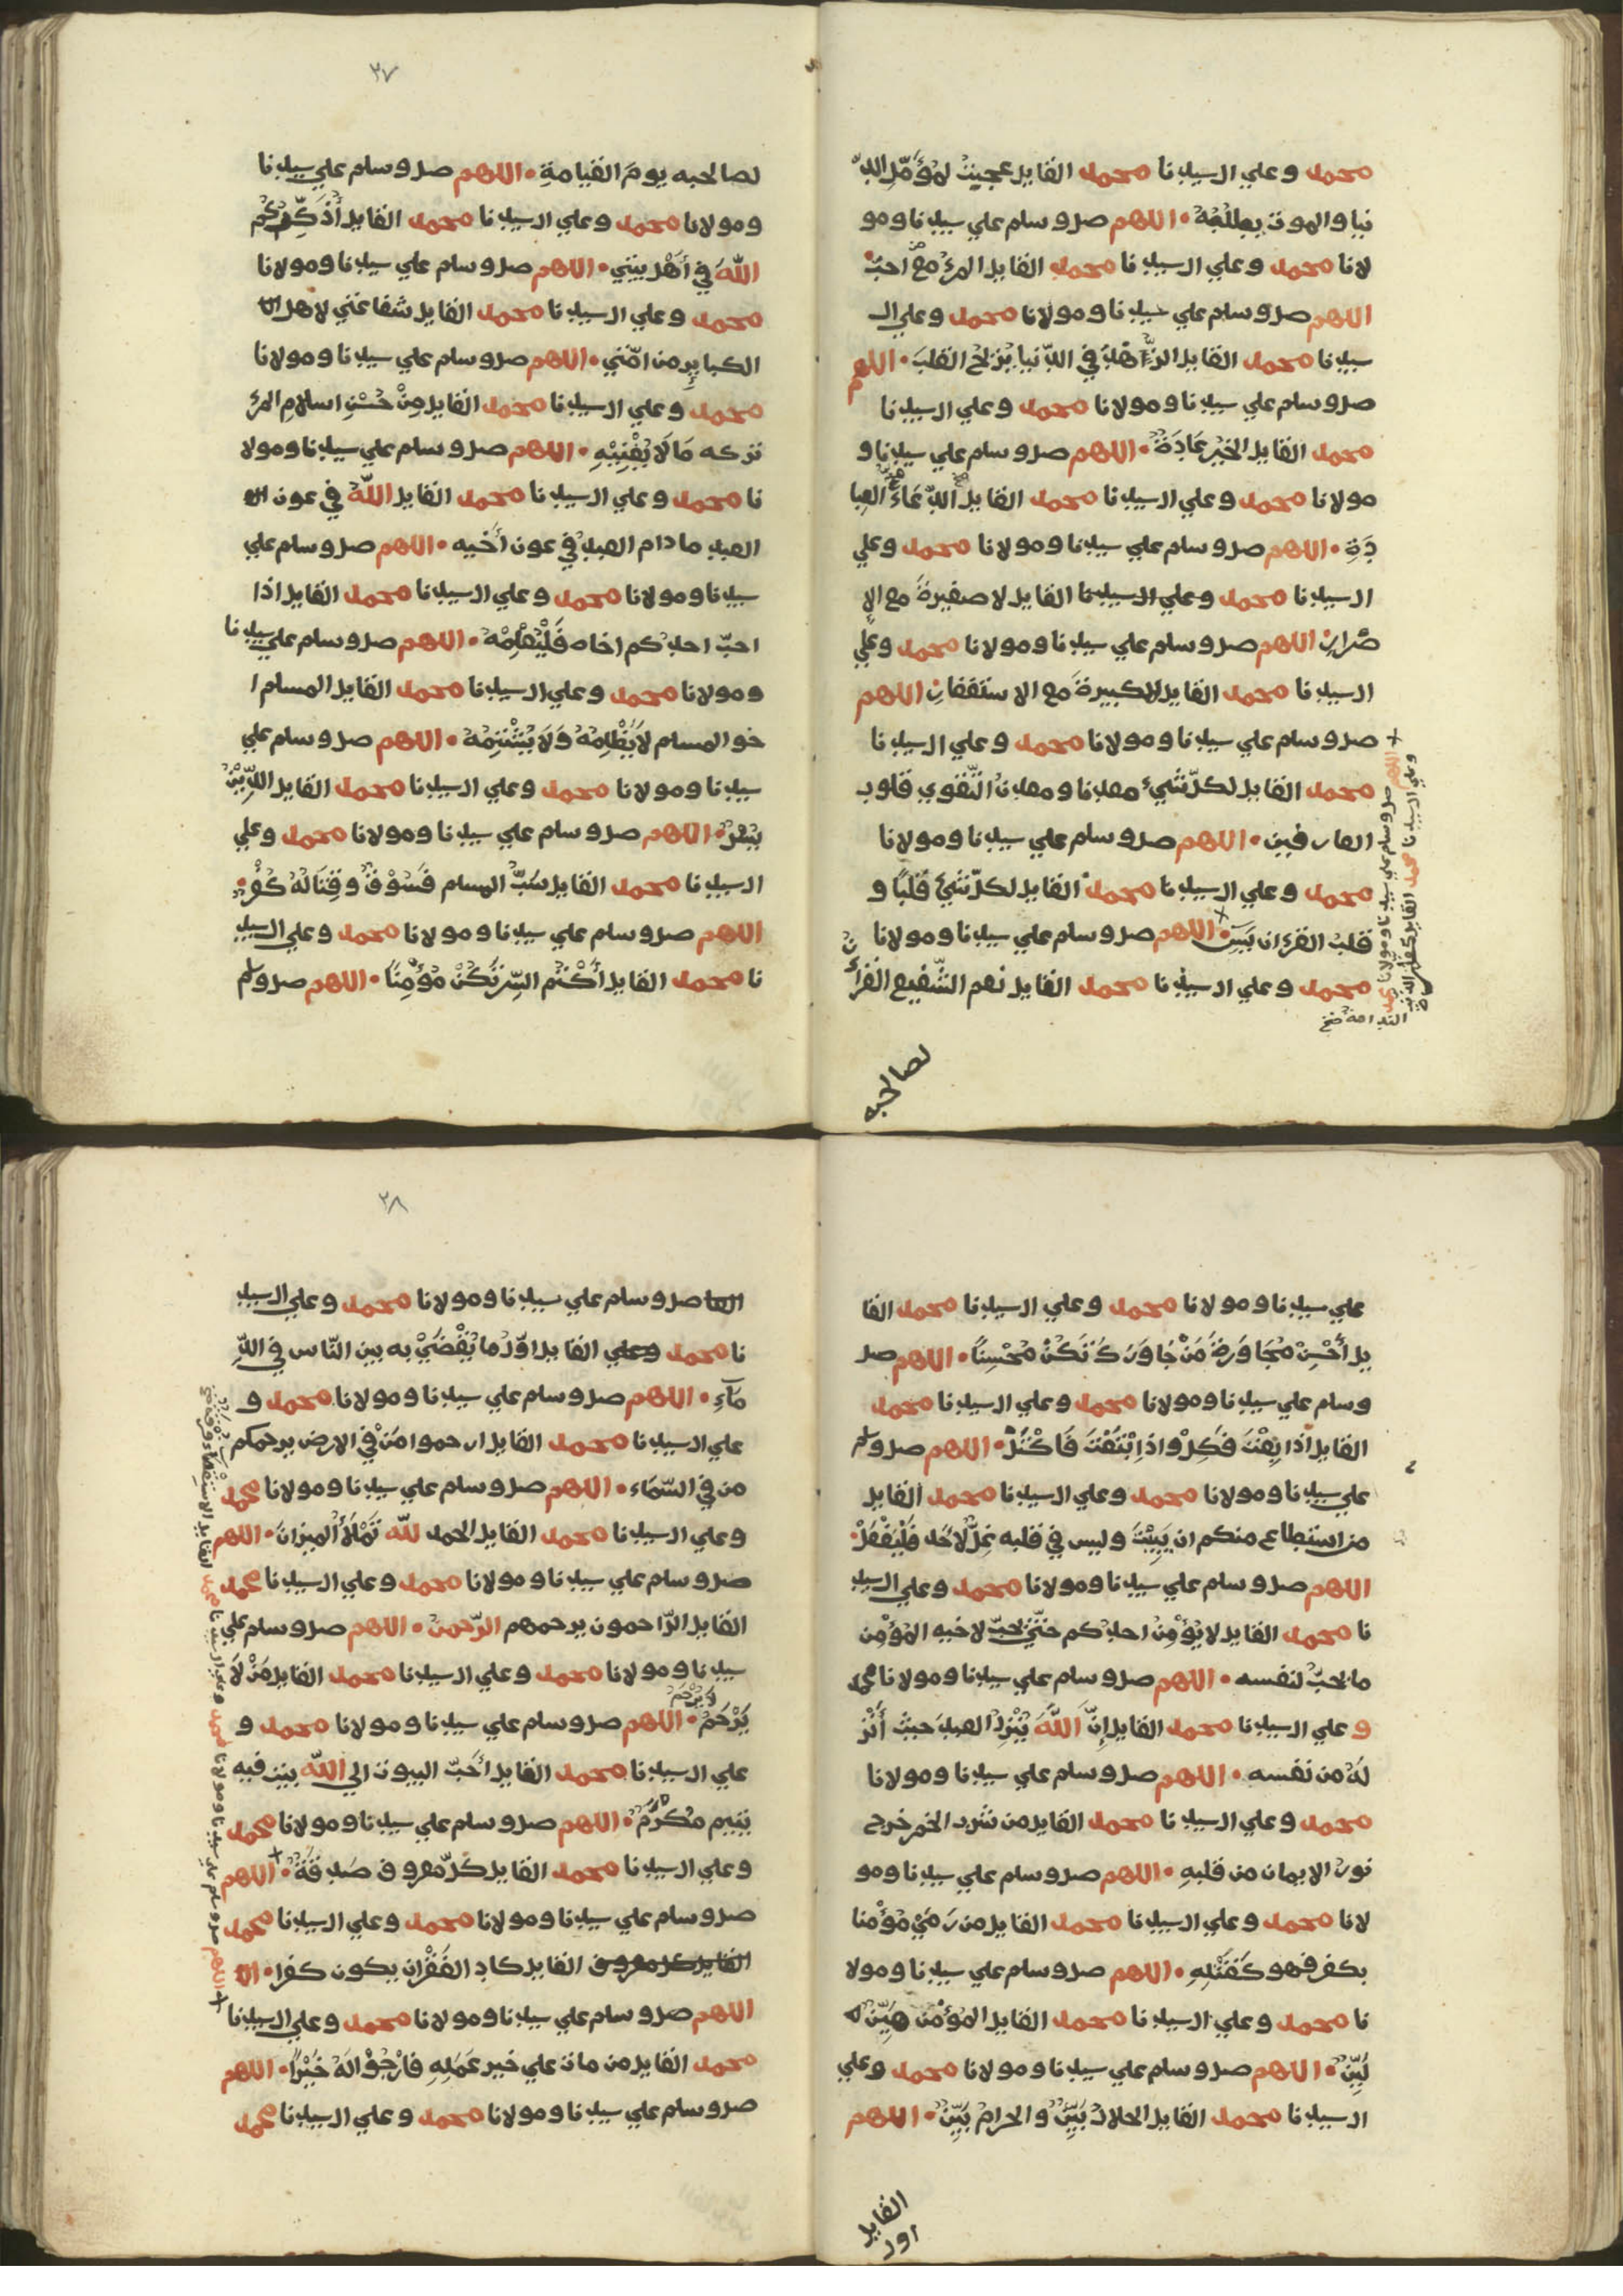 محمد وعلي ال سيدنا محمد القايل عجبت لمؤمّل الدّ
نيا والموت يطلبُهُ • اللهم صل وسلم علي سيدنا ومو
لانا محمد وعلي ال سيدنا محمد القايل المرءُ مع من احبّ •
اللهم صل وسلم علي سيدنا ومولانا محمد وعلي ال
سيدنا محمد القايل الزّاهدُ في الدّنيا يُريحُ القلبَ • اللهم
صل وسلم علي سيدنا ومولانا محمد وعلي ال سيدنا
محمد القايل الخيرُ عَادَةٌ • اللهم صل وسلم علي سيدنا و
مولانا محمد وعلي ال سيدنا محمد القايل الدّعَاءُ مخّ العِبا
دَةِ • اللهم صل وسلم علي سيدنا ومولانا محمد وعلي
ال سيدنا محمد وعلي ال سيدنا القايل لا صغيرةَ مع الا
صْرارِ اللهم صل وسلم علي سيدنا ومولانا محمد وعلي
ال سيدنا محمد القايل لا كبيرةَ مع الاستغفارِ اللهم
صل وسلم علي سيدنا ومولانا محمد وعلي ال سيدنا
محمد القايل لكلّ شيءٍ معدنا ومعدنُ التّقوي قلوب
العارفين • اللهم صل وسلم علي سيدنا ومولانا
محمد وعلي ال سيدنا محمد القايل لكلّ شيءٍ قلبًا و
قلبُ القرءان يَسِ • اللهم صل وسلم علي سيدنا ومولانا
محمد وعلي ال سيدنا محمد القايل نعم الشّفيع القرأن
اللهم صل وسلم علي سيدنا ومولانا محمد
وعلي ال سيدنا محمد القايل كفّارة الذنب
الندامة صح
لصاحبه
٢٧
لصاحبه يومَ القيامةِ • اللهم صل وسلم علي سيدنا
ومولانا محمد وعلي ال سيدنا محمد القايل أُذَكِّركُم
اللهَ في أَهْل بيتي • اللهم صل وسلم علي سيدنا ومولانا
محمد وعلي ال سيدنا محمد القايل شفاعتي لاهل
الكبايرِ من امّتي • اللهم صل وسلم علي سيدنا ومولانا
محمد وعلي ال سيدنا محمد القايل مِنْ حُسْنِ اسلامِ المرءِ
تركه مَا لَا يُعْنِيْهِ • اللهم صل وسلم علي سيدنا ومولا
نا محمد وعلي ال سيدنا محمد القايل اللهُ في عون
العبد ما دام العبدُ في عون أَخيه • اللهم صل وسلم علي
سيدنا ومولانا محمد وعلي ال سيدنا محمد القايل اذا
احبّ احدكم اخاه فَلْيُعْلِمْهُ • اللهم صل وسلم علي سيدنا
ومولانا محمد وعلي ال سيدنا محمد القايل المسلم ا
خو المسلم لَا يُظْلِمُهُ وَلَا يُشْتِمُهُ • اللهم صل وسلم علي
سيدنا ومولانا محمد وعلي ال سيدنا محمد القايل الدِّيْنُ
يُسْرٌ • اللهم صل وسلم علي سيدنا ومولانا محمد وعلي
ال سيدنا محمد القايل سَبُّ المسلم فَسُوْقٌ وقِتَالُهُ كُفْرٌ •
اللهم صل وسلم علي سيدنا ومولانا محمد وعلي ال سيد
نا محمد القايل أُكْتُمِ السِّرَّ تَكُنْ مُؤْمِنًا • اللهم صل وسلم
علي سيدنا ومولانا محمد وعلي ال سيدنا محمد القا
يل أَحْسِنْ مُجَاوَرَةَ مَنْ جَاوَرَكَ تَكُنْ مُحْسِنًا • اللهم صل
وسلم علي سيدنا ومولانا محمد وعلي ال سيدنا محمد
القايل اذا بِعْتَ فَكِلْ واذا ابْتَعْتَ فَاكْتَلْ • اللهم صل وسلم
علي سيدنا ومولانا محمد وعلي ال سيدنا محمد القايل
من استطاع منكم ان يَبِيْتَ وليس في قلبه غِلٌّ لِأَحَدٍ فَلْيَفْعَلْ •
اللهم صل وسلم علي سيدنا ومولانا محمد وعلي ال سيد
نا محمد القايل لا يُؤْمِنُ احدُكم حتّي يحبّ لاخيه المؤْمِن
ما يحبّ لنفسه • اللهم صل وسلم علي سيدنا ومولانا محمد
وعلي ال سيدنا محمد القايل إِنَّ اللهَ يُنْزِلُ العبدَ حيثُ أَنْزَ
لَهُ من نفسه • اللهم صل وسلم علي سيدنا ومولانا
محمد وعلي ال سيدنا محمد القايل من شرب الخمر خرج
نورُ الايمان من قلبهِ • اللهم صل وسلم علي سيدنا ومو
لانا محمد وعلي ال سيدنا محمد القايل من رَمَيْ مُؤْمنا
بكفر فهو كَقَتْلِهِ • اللهم صل وسلم علي سيدنا ومولا
نا محمد وعلي ال سيدنا محمد القايل المؤْمن هَيِّنٌ
لَيِّنٌ • اللهم صل وسلم علي سيدنا ومولانا محمد وعلي
ال سيدنا محمد القايل الحلالُ بَيِّنٌ والحرامُ بَيِّنٌ • اللهم
القايل
اول
٢٨
صل وسلم علي سيدنا ومولانا محمد وعلي ال سيد
نا محمد وعلي القايل اوّلُ ما يُقْضَيْ به بين النّاس في الدِّ
مَآءِ • اللهم صل وسلم علي سيدنا ومولانا محمد و
علي ال سيدنا محمد القايل ارحموا مَنْ في الارض يرحمكم
من في السّمَاء • اللهم صل وسلم علي سيدنا ومولانا محمد
وعلي ال سيدنا محمد القايل الحمد لله تَمْلَأُ الميزانَ • اللهم
صل وسلم علي سيدنا ومولانا محمد وعلي ال سيدنا محمد
القايل الرّاحمون يرحمهم الرّحمنُ • اللهم صل وسلم علي
سيدنا ومولانا محمد وعلي ال سيدنا محمد القايل مَنْ لَا
يَرْحَمُ لَا يُرْحَمُ • اللهم صل وسلم علي سيدنا ومولانا محمد و
علي ال سيدنا محمد القايل أَحَبّ البيوت الي الله بيت فيه
يتيم مُكرَّمٌ • اللهم صل وسلم علي سيدنا ومولانا محمد
وعلي ال سيدنا محمد القايل كلّ معروف صَدقَةٌ • اللهم
صل وسلم علي سيدنا ومولانا محمد وعلي ال سيدنا محمد
القايل كل معروف القايل كاد الفَقْرُ ان يكون كفرا •
اللهم صل وسلم علي سيدنا ومولانا محمد وعلي ال سيدنا
محمد القايل من مات علي خير عَمَلِهِ فارْجُوْا لَهُ خَيْرًا • اللهم
صل وسلم علي سيدنا ومولانا محمد وعلي ال سيدنا محمد
اللهم صل وسلم علي سيدنا ومولانا محمد وعلي ال سيدنا محمد القايل